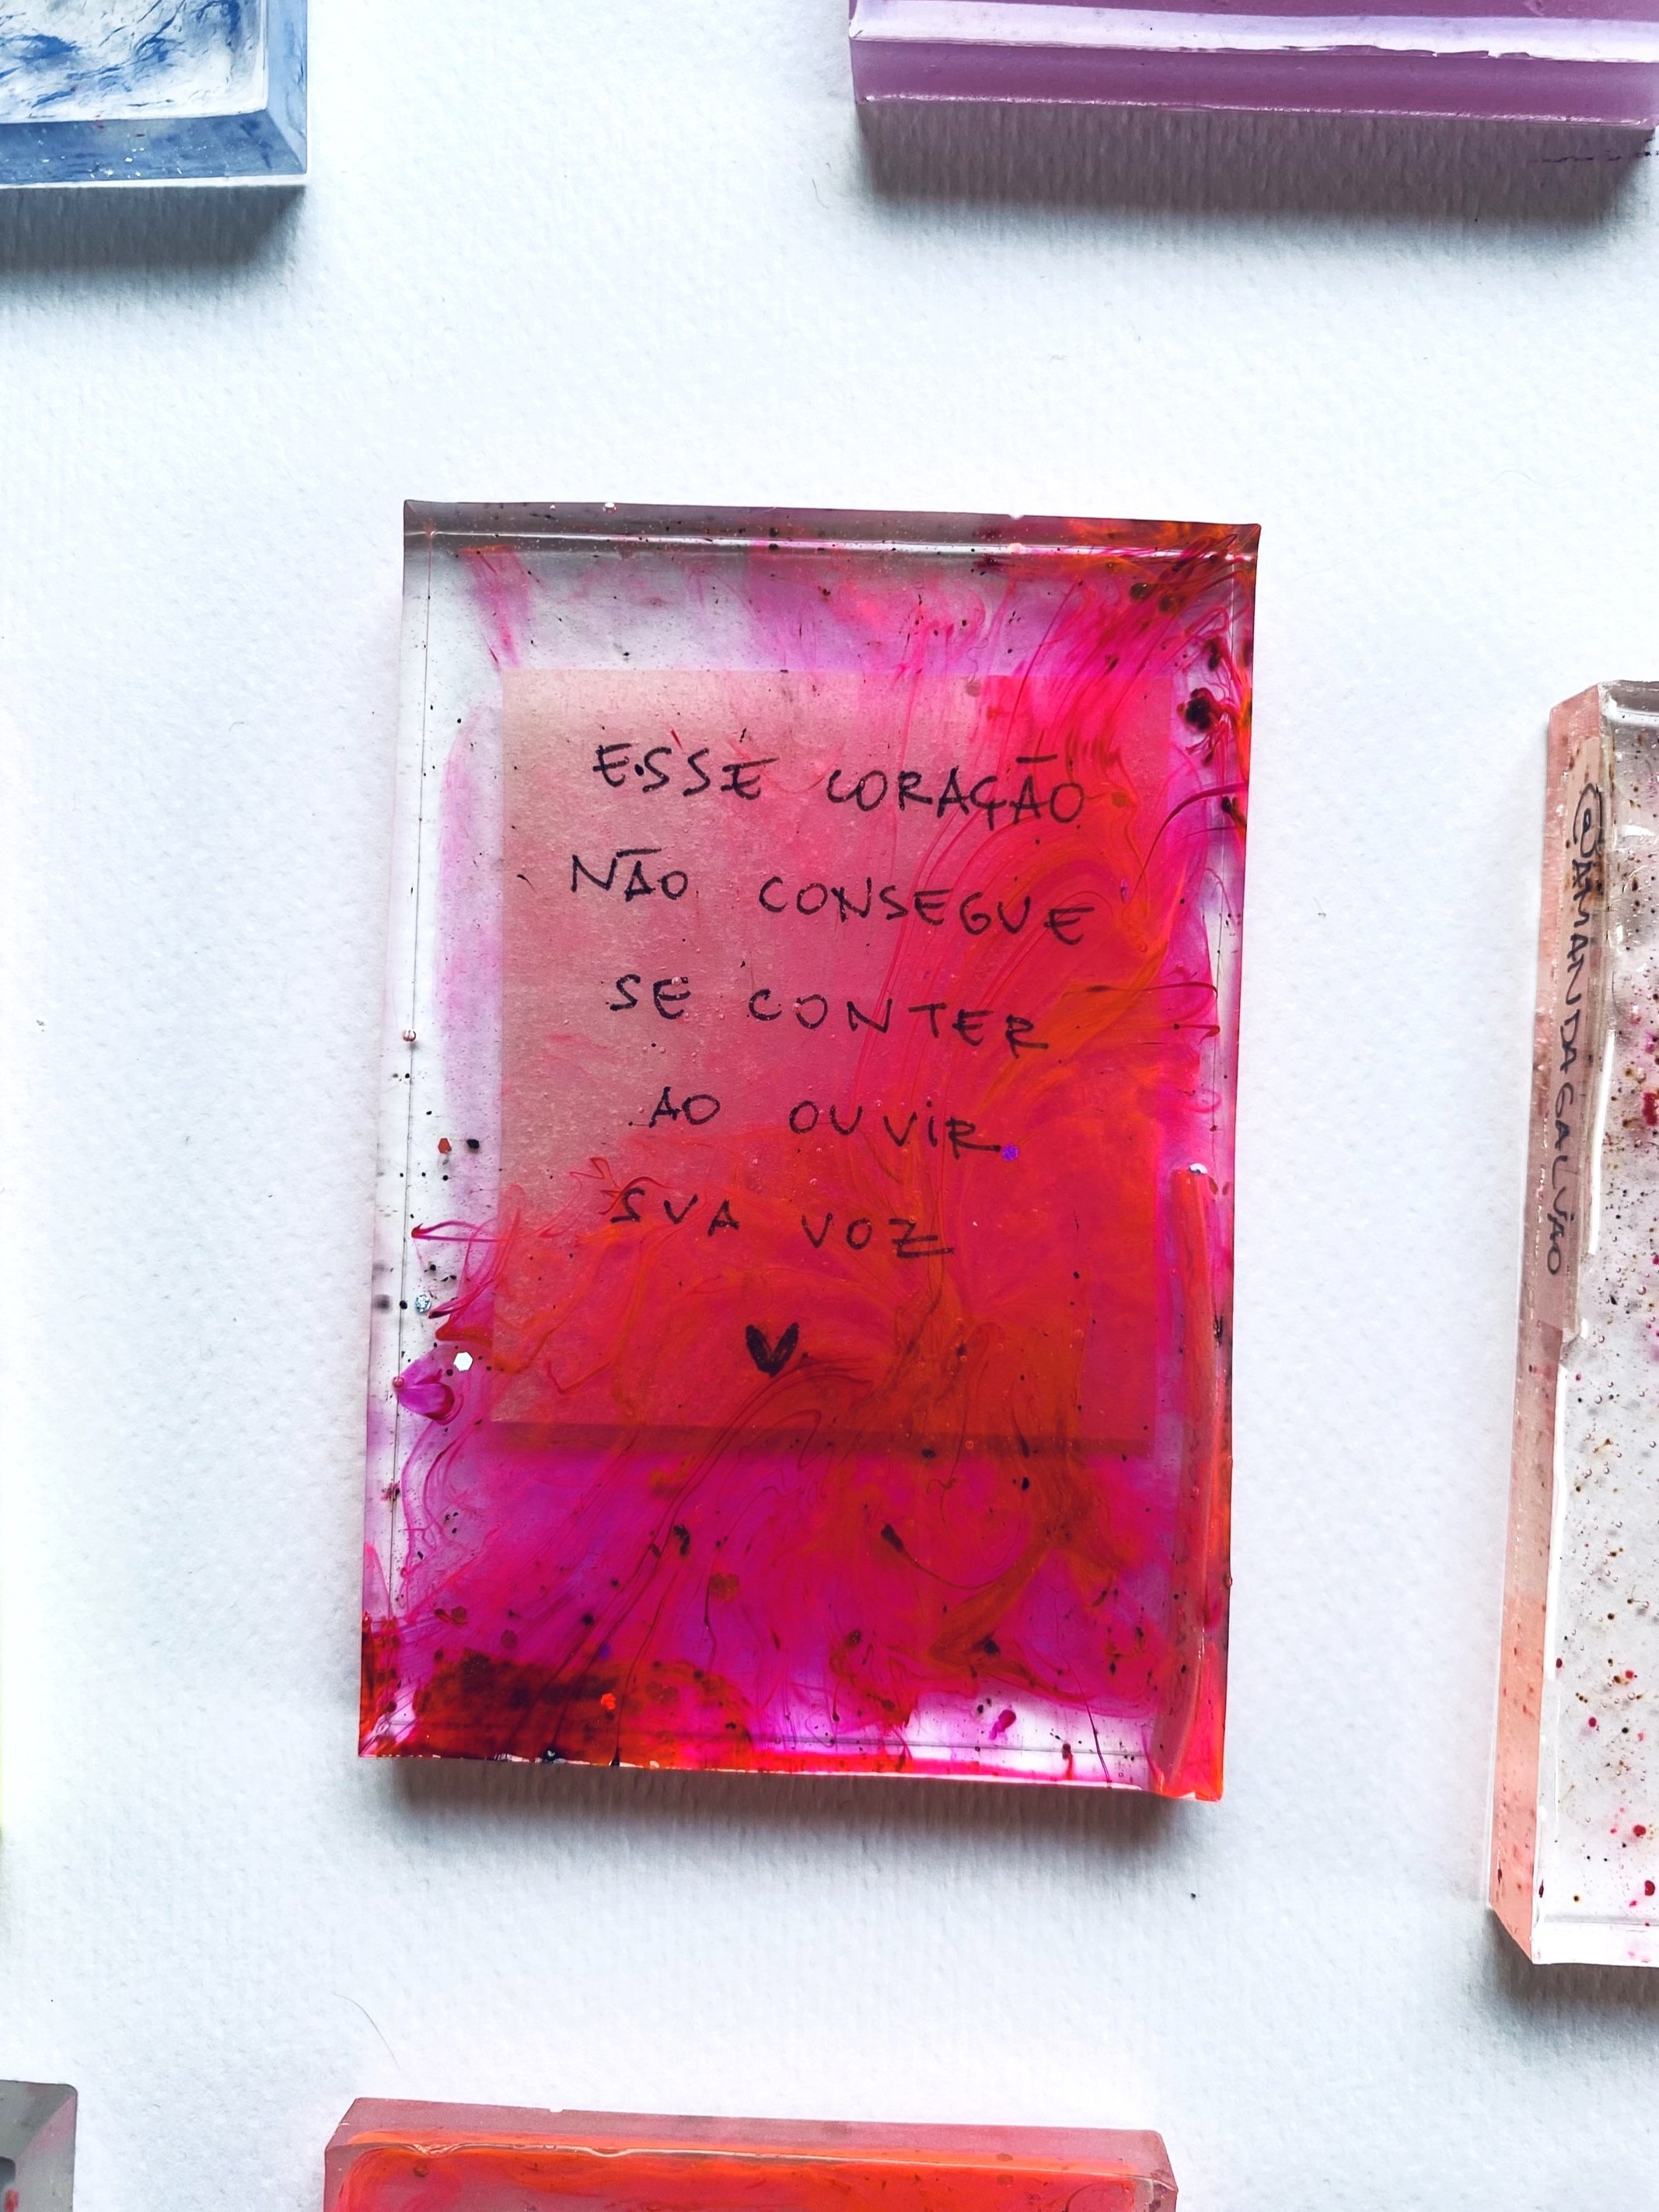 ESSE CORAÇÃO
NÃO CONSEGUE
SE CONTER
AO OUVIR
SUA VOZ
@AMANDAGALVÃO